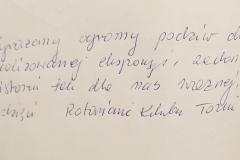 yrażamy ogromny podziw dl
alizowanej ekspozycji,
historii tak dla nas ważnej.
Rotarianie Klubu Toruń